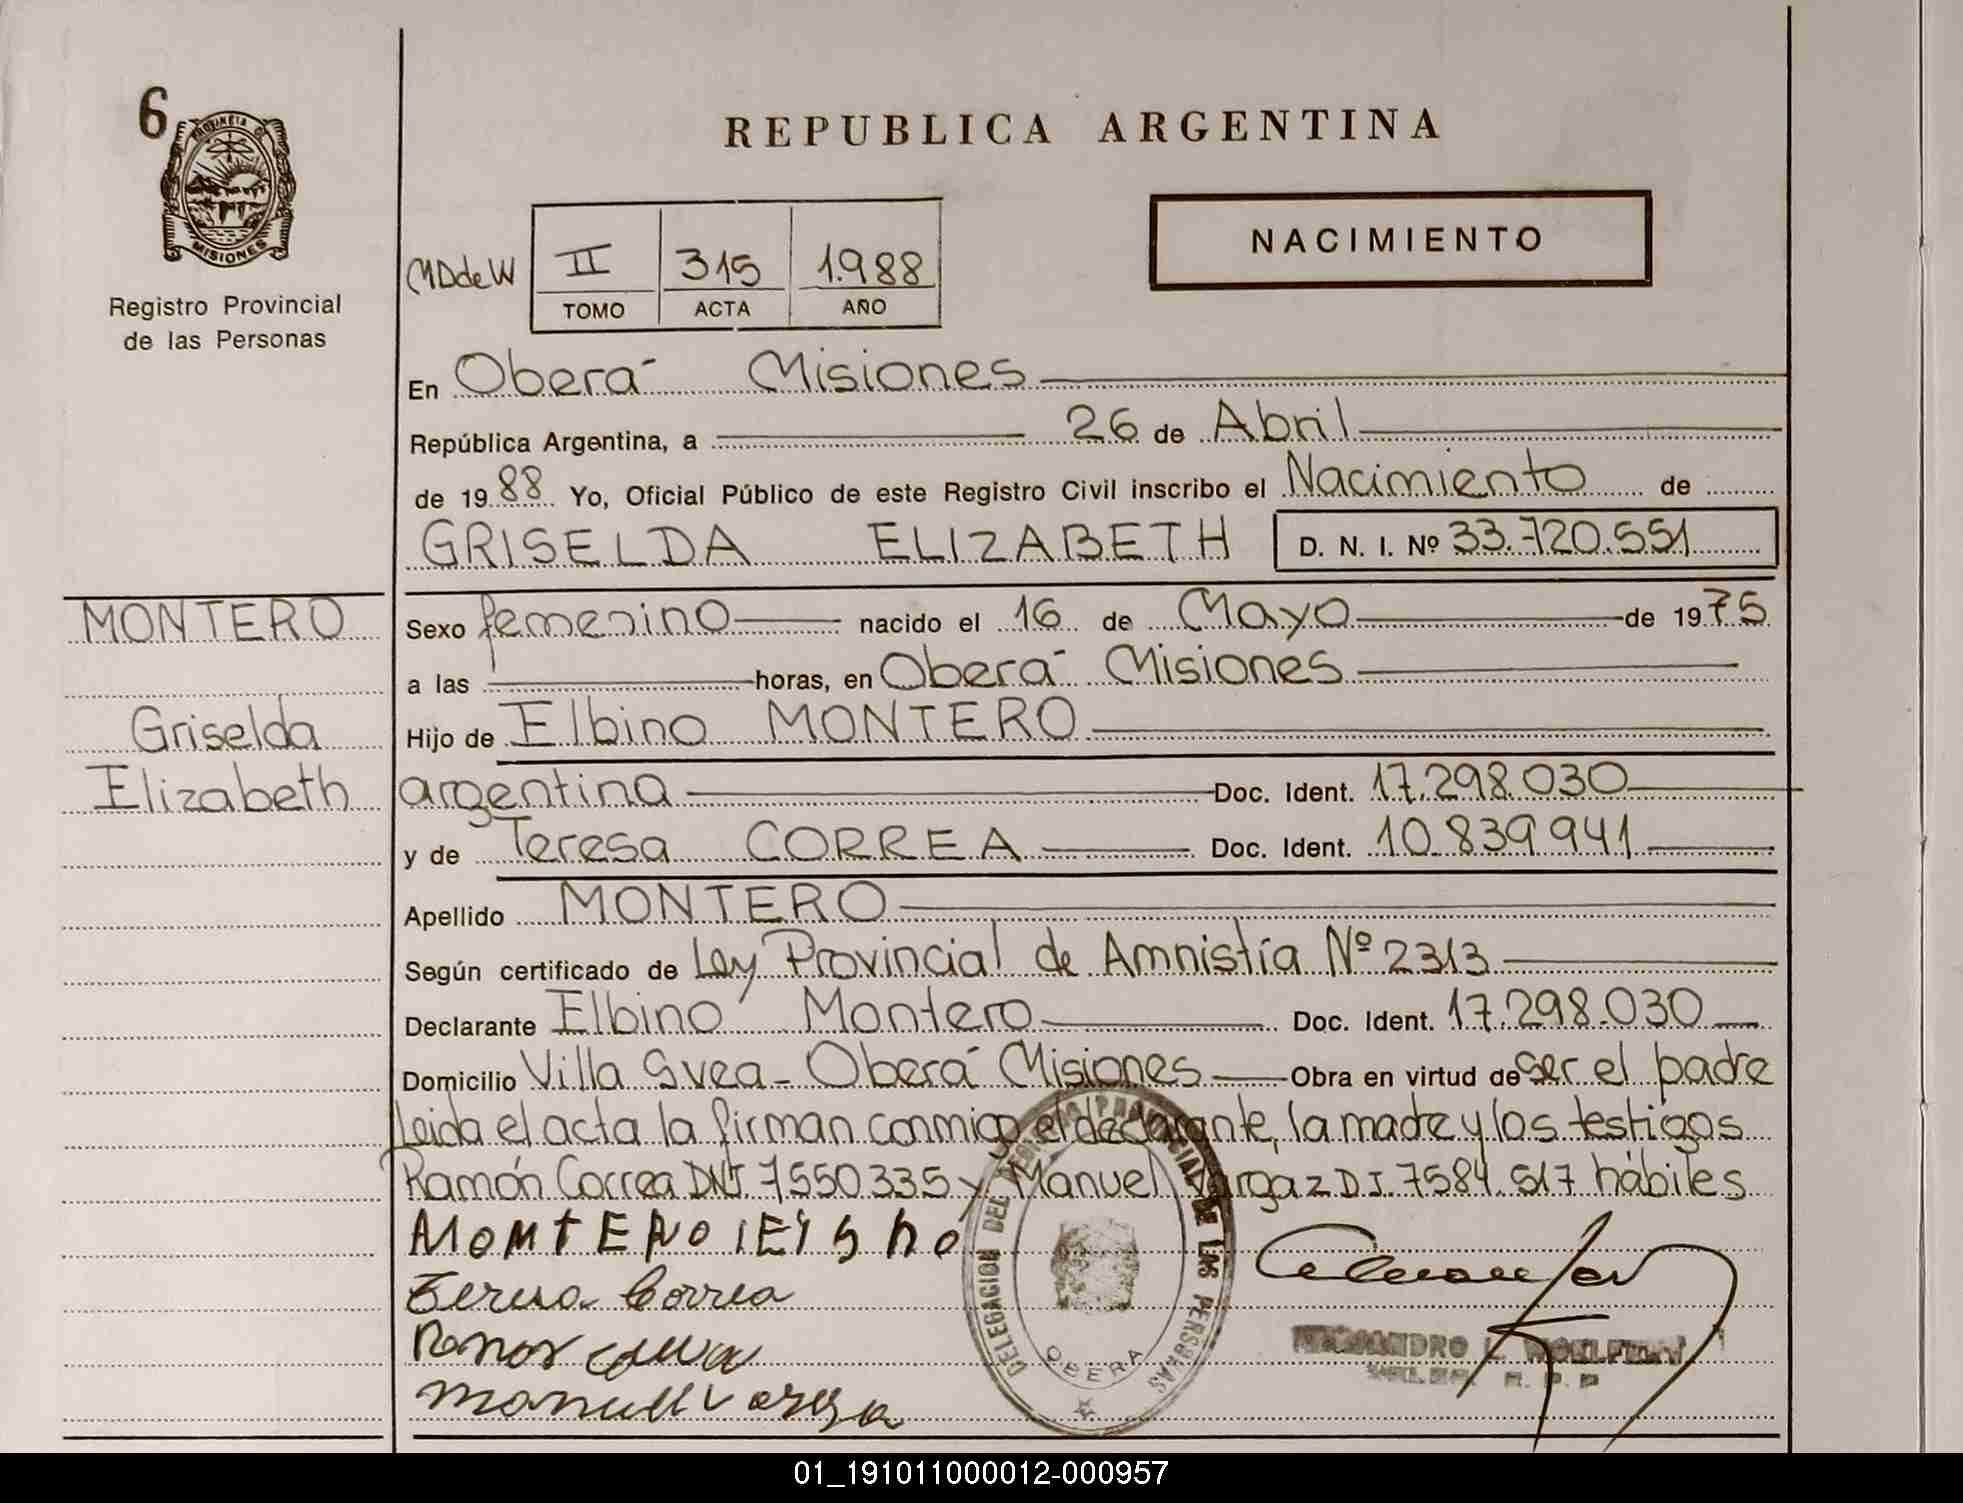 6
PROVINCIA D
MISIONES
Registro Provincial
de las Personas
REPUBLICA ARGENTINA
NACIMIENTO
MDdeW II 315 1.988
TOMO ACTA AÑO
En Oberá Misiones
República Argentina, a 26 de Abril
de 1988 Yo, Oficial Público de este Registro Civil inscribo el Nacimiento de
GRISELDA ELIZABETH D. N. I. Nº 33.720.551
MONTERO
Griselda
Elizabeth
Sexo femenino nacido el 16 de Mayo de 1975
a las horas, en Oberá Misiones
Hijo de Elbino MONTERO
argentina Doc. Ident. 17.298.030
y de Teresa CORREA Doc. Ident. 10.839.941
Apellido MONTERO
Según certificado de Ley Provincial de Amnistía Nº 2313
Declarante Elbino Montero Doc. Ident. 17.298.030
Domicilio Villa Svea - Oberá Misiones Obra en virtud de ser el padre
Leida el acta la firman conmigo el declarante, la madre y los testigos
Ramón Correa DNI. 7550335 y Manuel Vargaz D.I. 7584.517 hábiles
Teresa Correa
DELEGACION DEL REGISTRO PROVINCIAL DE LAS PERSONAS
OBERA
01_191011000012-000957